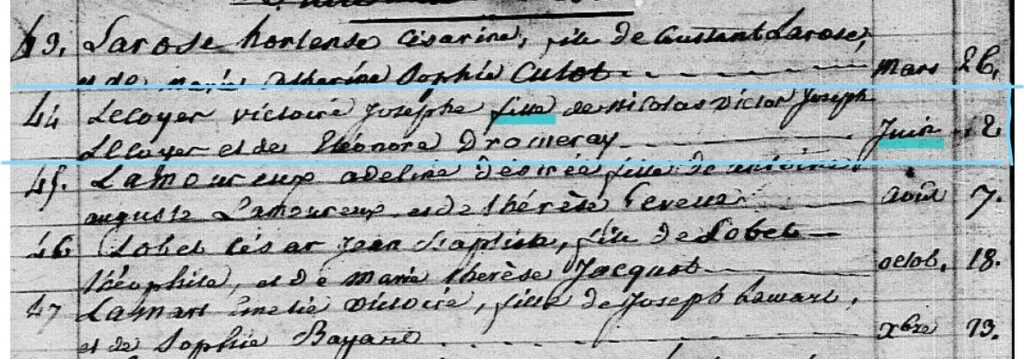 43. Larose hortense Césarine, fille de Constant Larose,
et de marie Catherine Sophie Culot mars 26.
44 Lecoyer victoire Josephe fille de Nicolas Victor Joseph
Lecoyer et de Eléonore Dromeray Juin 12.
45. Lamoureux adeline désirée fille de
auguste Lamoureux et de thérèse août 7.
46 Lobet César Jean Baptiste, fils de Lobet
théophile, et de Marie thérèse Jacquot octob. 18.
47 Lamart victoire, fille de Joseph Lamart,
et de Sophie Bayard xbre 13.